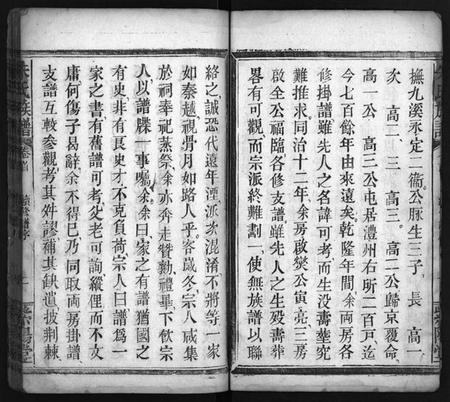 撫九溪永定二衞公豚生三子　長　高一
次　高二　三　高三　高二公歸京覆命
高一公　高三公屯居澧州右所二百戸迄
今七百餘年由來遠矣乾隆年間余両房各
修掛譜雖先人之名諱可考而生没壽塋究
難推求同治十二年余房啟爕公寅亮三房
啟全公福臨各修支譜雖先人之生殁壽葬
畧有可觀而宗派終難劃一使無族譜以聯
絡之誠恐代遠年湮派次混淆不將等一家
如秦越視骨月如路人乎客歳冬宗人咸集
於祠奉祀蒸祭余亦秀走贊勷禮畢下飲宗
人以譜牒一事囑余余曰家之有譜猶國之
有史非有良史才不克負荷宗人曰譜爲一
家之書有舊譜可考父老可詢縱俚而不文
庸何傷子曷辭余不得已乃同取両房掛譜
支譜互較參觀考其舛謬補其缺遺披荆棘
朱氏族譜
卷首
紫陽堂